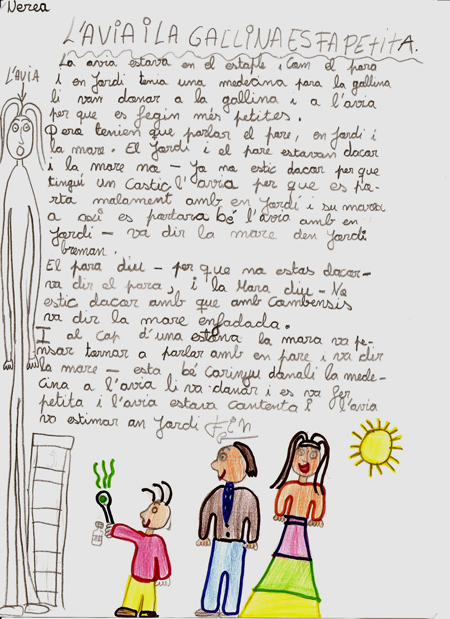 Nerea
L'AVIA I LA GALLINA ES FA PETITA.
L'AVIA
La avia estava en el estaple i com el para
i en Jardi tenia una medecina para la gallina
li van danar a la gallina i a l'avia
per que es fegin més petites.
Pero tenien que parlar el pare, en Jardi i
la mare. El Jardi i el pare estavan dacar
i la mare na - Ja na estic dacar per que
tingui un castic l'avia per que es pa-
rta malament amb en Jardí i su marota
a així es partara bé l'avia amb en
Jardi - va dir la mare den Jardi
breman.
El para diu - per que na estas dacar-
va dir el para, i la Mara diu - No
estic dacar amb que amb cambensis
va dir la mare enfadada.
I al cap d'una estona la mara va pe-
nsar tornar a parlar amb en pare i va dir
la mare - esta bé Carinyu danali la mede-
cina a l'avia li va danar i es va fer
petita i l'avia estava cantenta i l'avia
va estimar an Jardi FIN